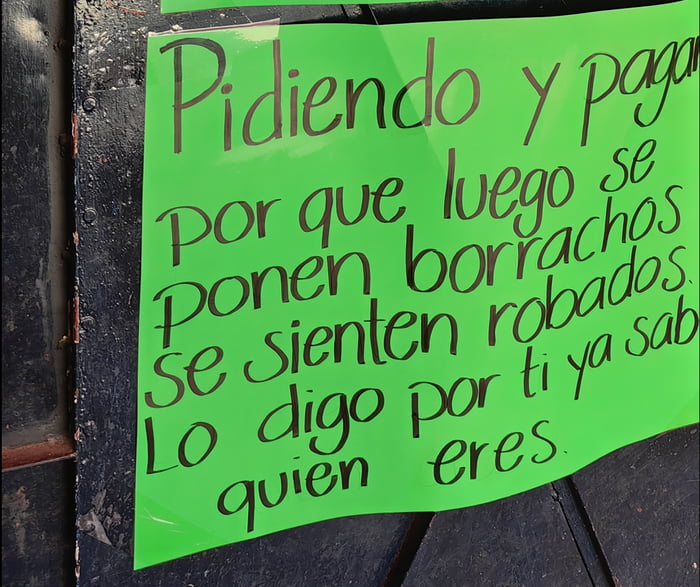 Pidiendo y pagan
por que luego se
ponen borrachos
se sienten robados.
Lo digo por ti ya sab
quien eres.